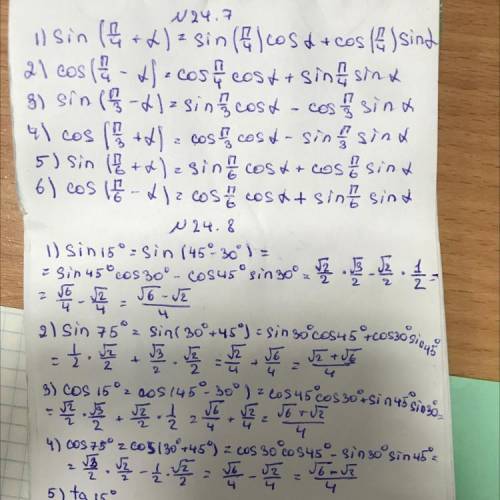 №24.7
1) sin(π/4 + α) = sin(π/4)cosα + cos(π/4)sinα
2) cos(π/4 - α) = cos π/4 cosα + sin π/4 sinα
3) sin(π/3 - α) = sin π/3 cosα - cos π/3 sinα
4) cos(π/3 + α) = cos π/3 cosα - sin π/3 sinα
5) sin(π/6 + α) = sin π/6 cosα + cos π/6 sinα
6) cos(π/6 - α) = cos π/6 cosα + sin π/6 sinα
№24.8
1) sin15° = sin(45° - 30°) =
= sin45°cos30° - cos45°sin30° = √2/2 · √3/2 - √2/2 · 1/2 =
= √6/4 - √2/4 = (√6 - √2)/4
2) sin 75° = sin(30° + 45°) = sin30°cos45° + cos30°sin45°
= 1/2 · √2/2 + √3/2 · √2/2 = √2/4 + √6/4 = (√2 + √6)/4
3) cos 15° = cos(45° - 30°) = cos45°cos30° + sin45°sin30° =
= √2/2 · √3/2 + √2/2 · 1/2 = √6/4 + √2/4 = (√6 + √2)/4
4) cos75° = cos(30° + 45°) = cos30°cos45° - sin30°sin45° =
= √3/2 · √2/2 - 1/2 · √2/2 = √6/4 - √2/4 = (√6 - √2)/4
5) tg 15°